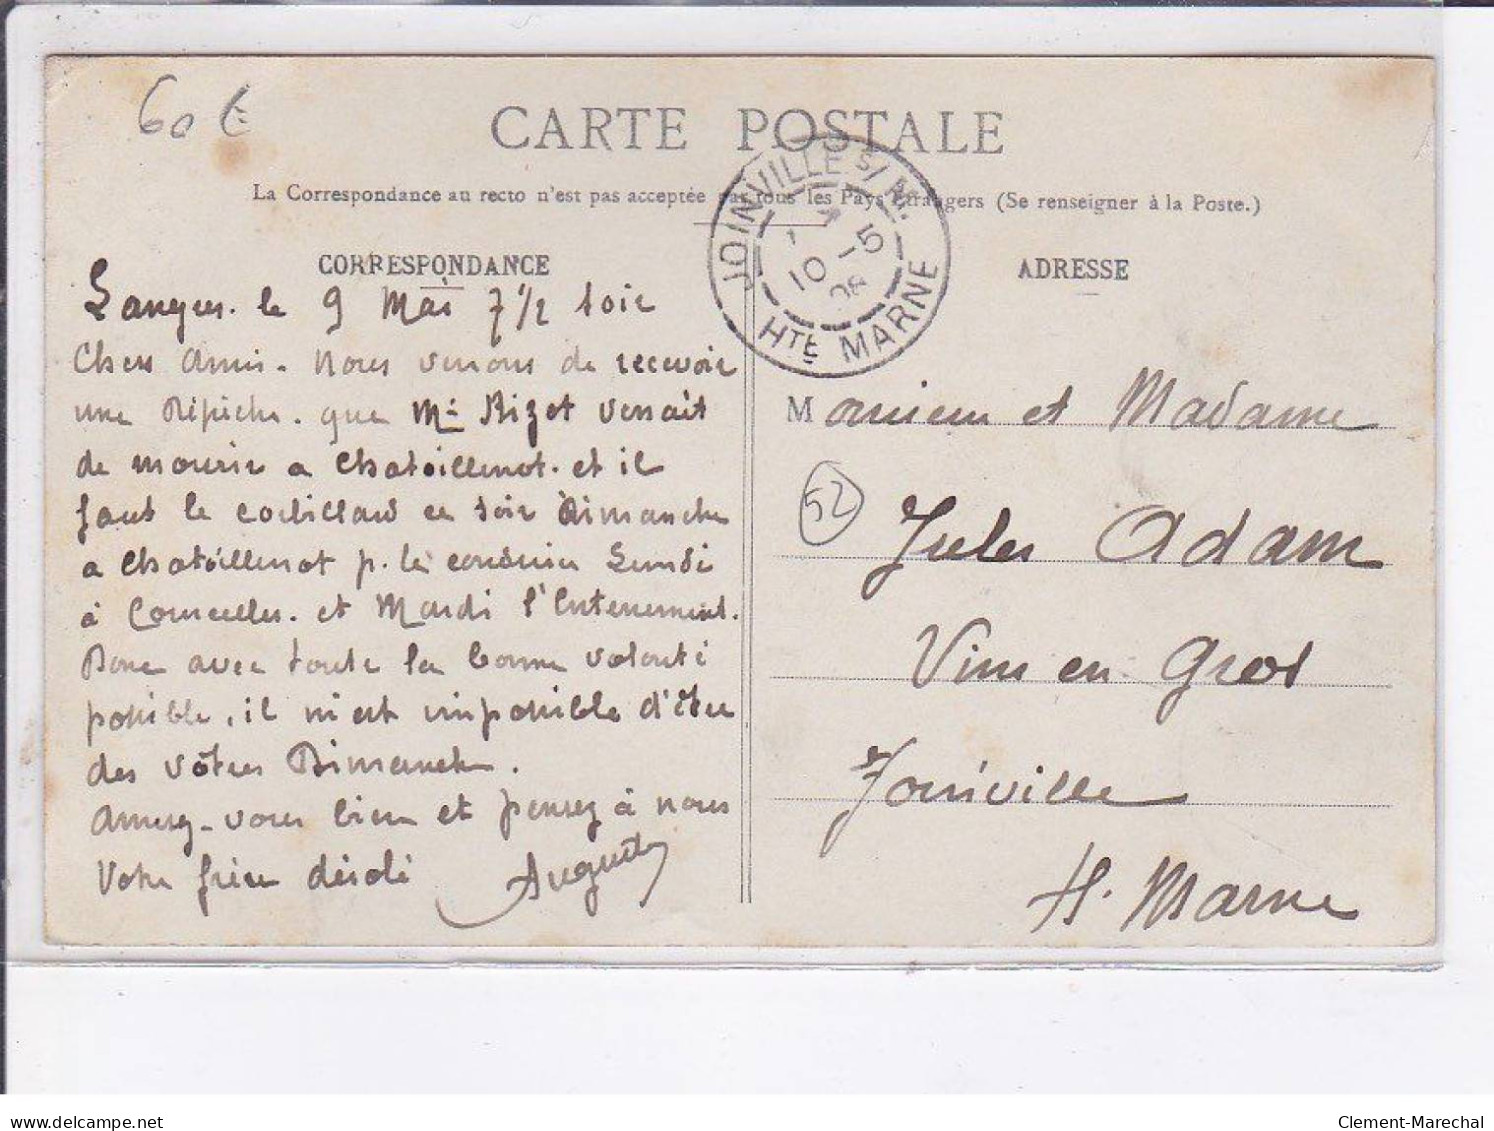 60 €
CARTE POSTALE
La Correspondance au recto n'est pas acceptée par tous les Pays Etrangers (Se renseigner à la Poste.)
JOINVILLE S/ M. HTE MARNE
10 -5
08
CORRESPONDANCE
Langres. le 9 Mai 7 1/2 soir
Chers Amis. Nous venons de recevoir
une Dépêche. que Mr Bizet venait
de mourir a Chatoillenot. et il
faut le corbillard ce soir Dimanche
a Chatoillenot p. le conduire Lundi
à Courcelles. et Mardi l'Enterrement.
Donc avec toute la bonne volonté
possible, il m'est impossible d'être
des vôtres Dimanche.
Amusez-vous bien et pensez à nous
Votre frère désolé Auguste
ADRESSE
Monsieur et Madame
52
Jules Adam
Vins en Gros
Joinville
H. Marne
delcampe.net
Clement-Marechal